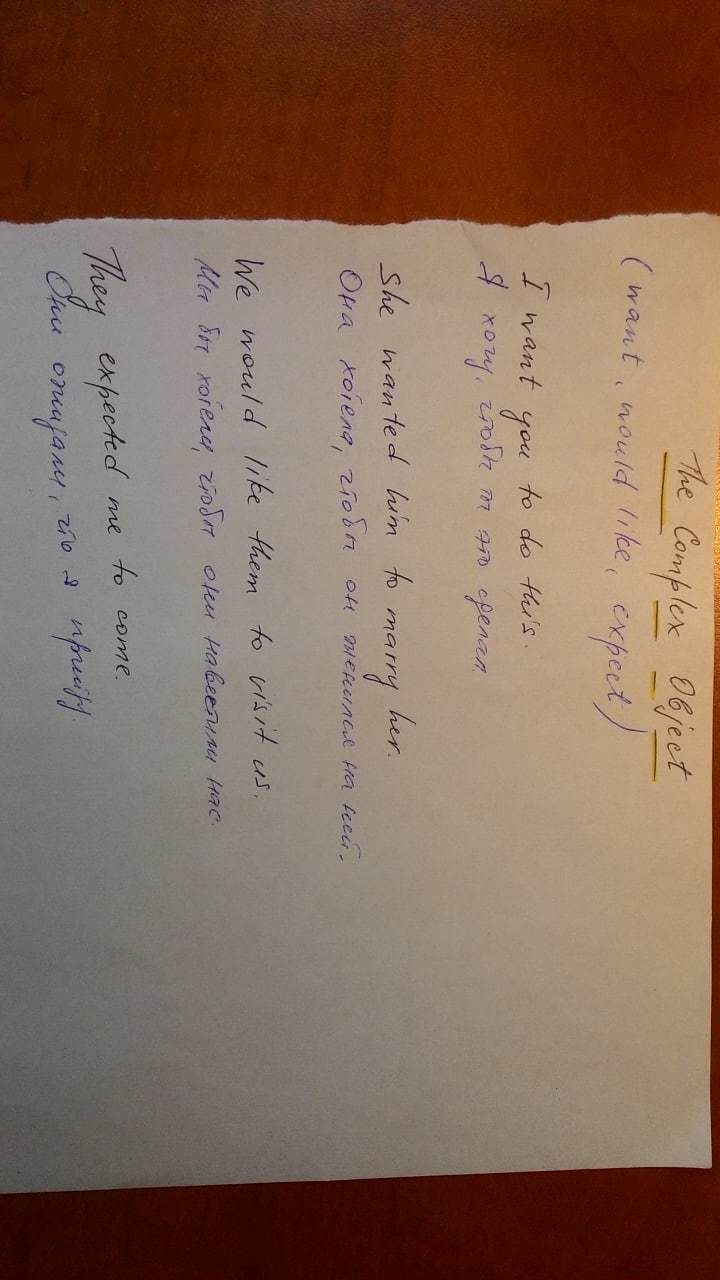 The Complex Object
(want, would like, expect)
I want you to do this.
Я хочу, чтобы ты это сделал.
She wanted him to marry her.
Она хотела, чтобы он женился на ней.
We would like them to visit us.
Мы бы хотели, чтобы они навестили нас.
They expected me to come.
Они ожидали, что я прийду.